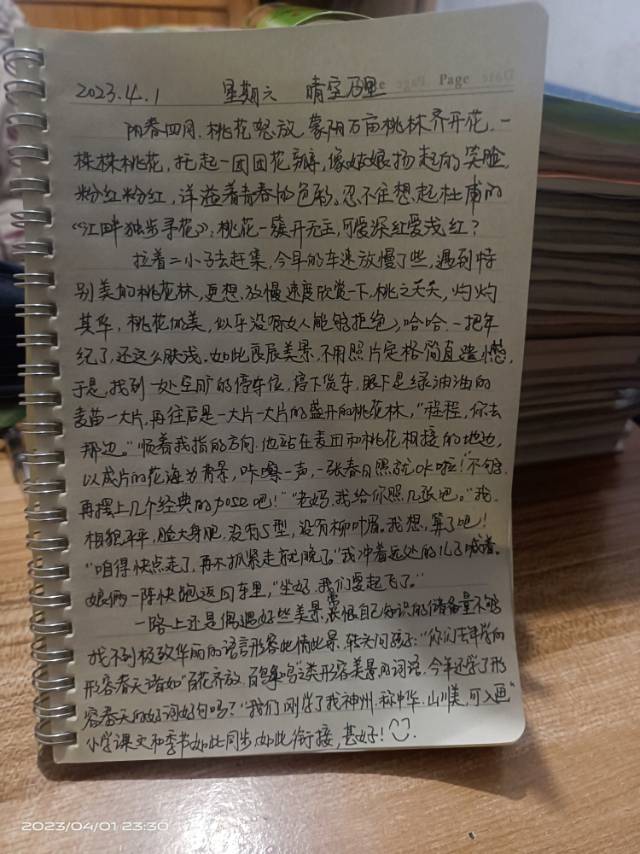 Date Page
2023.4.1 星期六 晴空万里
阳春四月,桃花怒放,蒙阴万亩桃林齐开花,一
株株桃花,托起一团团花瓣,像姑娘扬起的笑脸,
粉红粉红,洋溢着青春的色彩。忍不住想起杜甫的
《江畔独步寻花》:桃花一簇开无主,可爱深红爱浅红?
拉着二小子去赶集,今年的车速放慢了些,遇到特
别美的桃花林,更想放慢速度欣赏一下,桃之夭夭,灼灼
其华,桃花的美,似乎没有女人能够拒绝,哈哈,一把年
纪了,还这么肤浅。如此良辰美景,不用照片定格简直遗憾,
于是,找到一处空旷的停车位,停下货车,眼下是绿油油的
麦苗一大片,再往后是一大片一大片的盛开的桃花林,“程程,你去
那边。”顺着我指的方向,他站在麦田和桃花相接的地边,
以成片的花海为背景,咔嚓一声,一张春日照就咔啦!“不够,
再摆上几个经典的pose吧!”“老妈,我给你照几张吧。”“我,
相貌平平,脸大身肥,没有S型,没有柳叶眉。我想,算了吧!
“咱得快点走了,再不抓紧走就晚了。”我冲着远处的儿子喊着。
娘俩一阵快跑返回车里,“坐好,我们要起飞了。”
一路上还是偶遇好些美景,常恨自己知识的储备量不够
找不到极致华丽的语言形容此情此景,转头问孩子:“你们去年学的
形容春天诸如“百花齐放,百鸟争鸣”之类形容美景的词语,今年还学了形
容春天的好词好句吗?”“我们刚学了我神州,称中华,山川美,可入画”
小学课文和季节如此同步,如此衔接,甚好!
2023/04/01 23:30